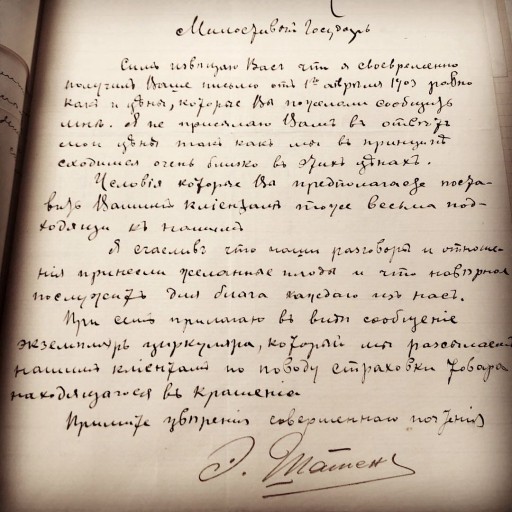 Милостивый Государь
Симъ извѣщаю Васъ что я своевременно
получилъ Ваше письмо отъ 1го апрѣля 1903 равно
какъ и цѣны, которые Вы пожелали сообщить
мнѣ. Я не присылаю Вамъ въ отвѣтъ
мои цѣны такъ какъ мы въ принципѣ
сходимся очень близко въ этихъ цѣнахъ.
Условія которые Вы предполагаете поста-
вить Вашимъ кліентамъ тоже весьма под-
ходящи къ нашимъ
Я счастливъ что наши разговоры и отноше-
нія принесли желанные плоды и что навѣрное
послужатъ для блага каждаго изъ насъ.
При семъ прилагаю въ видѣ сообщенія
экземпляръ циркуляра, который мы разсылаемъ
нашимъ кліентамъ по поводу страховки товара
находящагося въ крашеніи.
Примите увѣренія совершеннаго почтенія